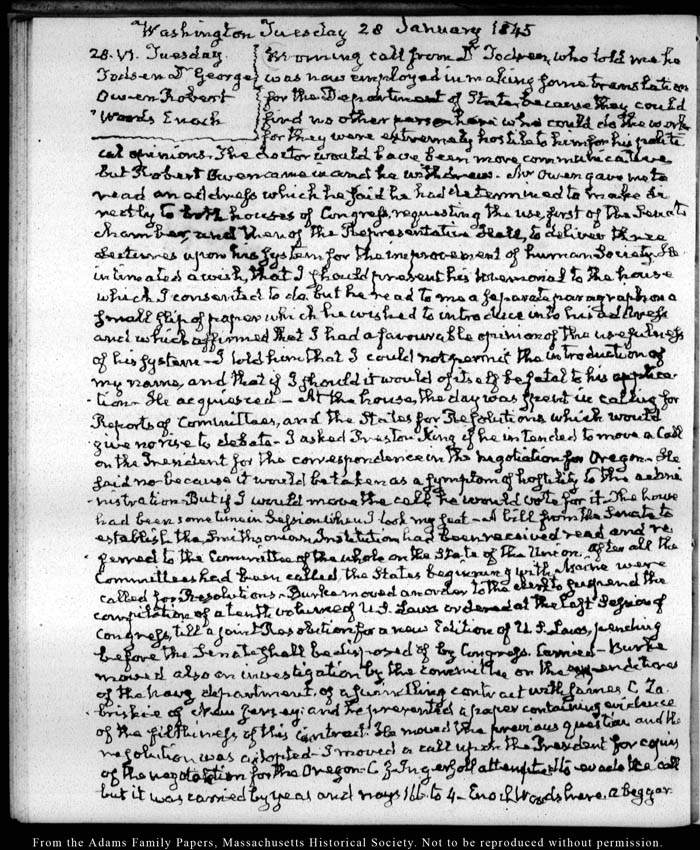 Washington Tuesday 28 January 1845
28. VI. Tuesday.
Todsen Dr George
Owen Robert
Woods Enoch
Morning call from Dr Todsen, who told me he
was now employed in making some translation
for the Department of State, because they could
find no other person here who could do the work
for they were extremely hostile to him for his politi-
cal opinions. The doctor would have been more communicative
but Robert Owen came in and he withdrew. Mr Owen gave me to
read an address which he said he had determined to make di-
rectly to both houses of Congress, requesting the use, first of the Senate
chamber, and then of the Representative Hall, to deliver three
Lectures upon his system for the improvement of human Society. He
intimated a wish, that I should present his Memorial to the house
which I consented to do but he read to me a separate paragraph on a
small slip of paper which he wished to introduce into his address
and which affirmed that I had a favourable opinion of the usefulness
of his system – I told him that I could not permit the introduction of
my name, and that if I should it would of itself be fatal to his applica-
tion – He acquiesced – At the house, the day was spent in calling for
Reports of Committees, and the States for Resolutions which would
give no rise to debate – I asked Preston King if he intended to move a Call
on the President for the correspondence in the negotiation for Oregon – He
said no because it would be taken as a symptom of hostility to the admi-
nistration – But if I would move the call he would vote for it. The house
had been some time in Session when I took my seat – A bill from the Senate to
establish the Smithsonian Institution had been received read and re-
ferred to the Committee of the whole on the State of the Union. After all the
Committees had been called the States beginning with Maine were
called for Resolutions – Burke moved an order to the clerk to suspend the
compilation of a tenth volume of U.S. Laws ordered at the last Session of
Congress, till a joint Resolution for a new Edition of U.S. Laws, pending
before the Senate shall be disposed of by Congress. Carried – Burke
moved also an investigation by the committee on the expenditures
of the navy department, of a swindling contract with James C. Za-
briskie of New Jersey: and he presented a paper containing evidence
of the filthiness of this contract. He moved the previous question and the
resolution was adopted – I moved a call upon the President for copies
of the negotiation for the Oregon – C. J. Ingersoll attempted to evade the call
but it was carried by yeas and nays to 4 – Enoch Woods here, a beggar.
From the Adams Family Papers, Massachusetts Historical Society. Not to be reproduced without permission.